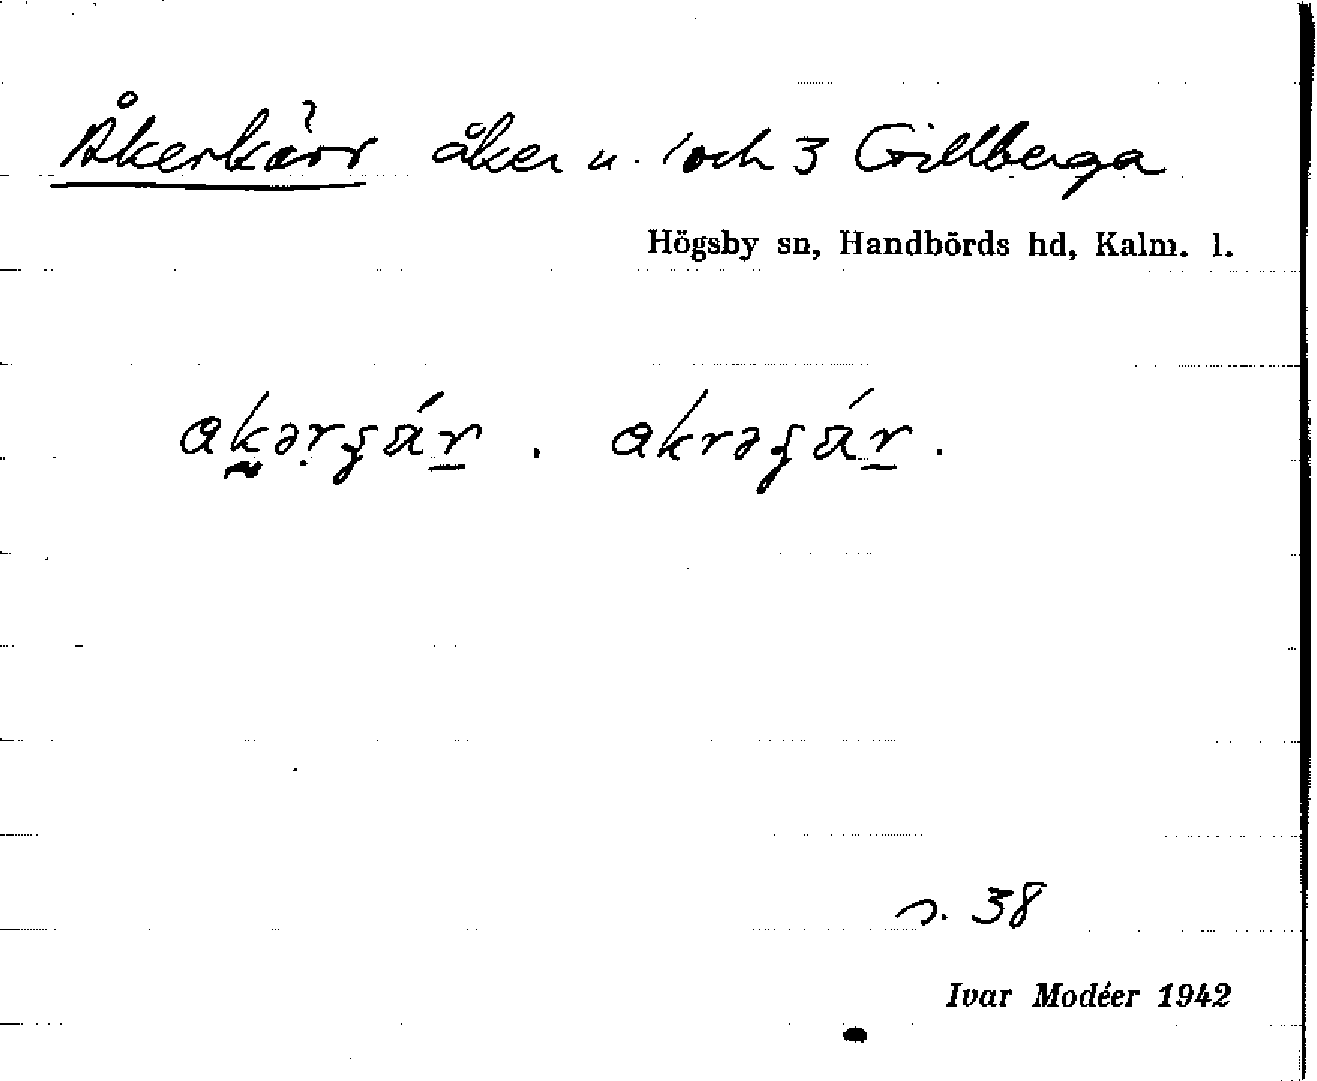 Åkerkärr åker u. 1 och 3 Gillberga
Högsby sn, Handbörds hd, Kalm. l.
s. 38
Ivar Modéer 1942